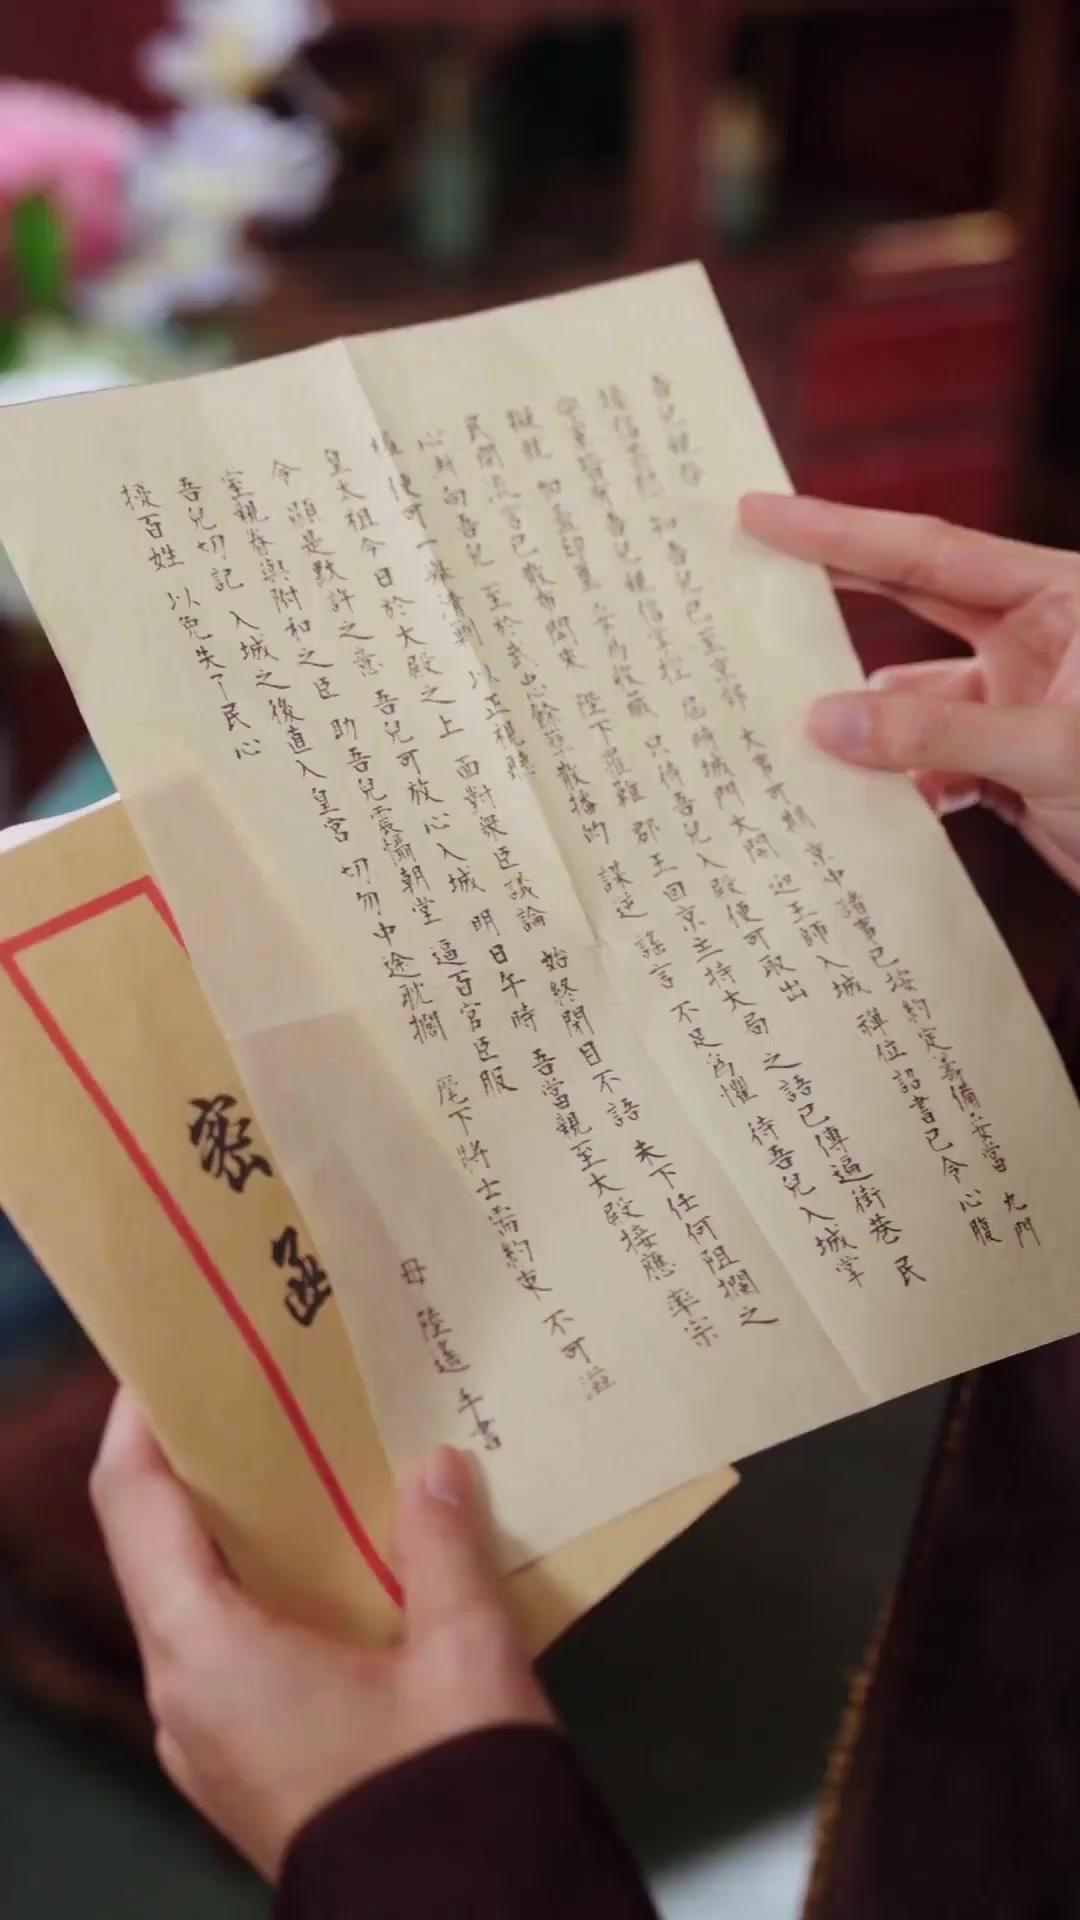 吾兒親啓
接信 知吾兒已至京郊 大事可期 京中諸事已按約定籌備妥當 九門
守軍皆有吾兒親信掌控 屆時城門大開 迎王師入城 禪位詔書已令心腹
擬就 加蓋印璽 妥為收藏 只待吾兒入殿便可取出
民間流言已散布開來 陛下罹難 郡王回京主持大局 之語已傳遍街巷 民
心所向吾兒 至於武 餘孽散播的 謀逆 謠言 不足為懼 待吾兒入城掌
權 便可一舉清剿 以正視聽
皇太祖今日於大殿之上 面對眾臣議論 始終閉目不語 未下任何阻攔之
令 顯是默許之意 吾兒可放心入城 明日午時 吾當親至大殿接應 率宗
室親眷與附和之臣 助吾兒震懾朝堂 逼百官臣服
吾兒切記 入城之後直入皇宮 切勿中途耽擱 麾下將士需約束 不可滋
擾百姓 以免失了民心
母 陸遙 手書
密函